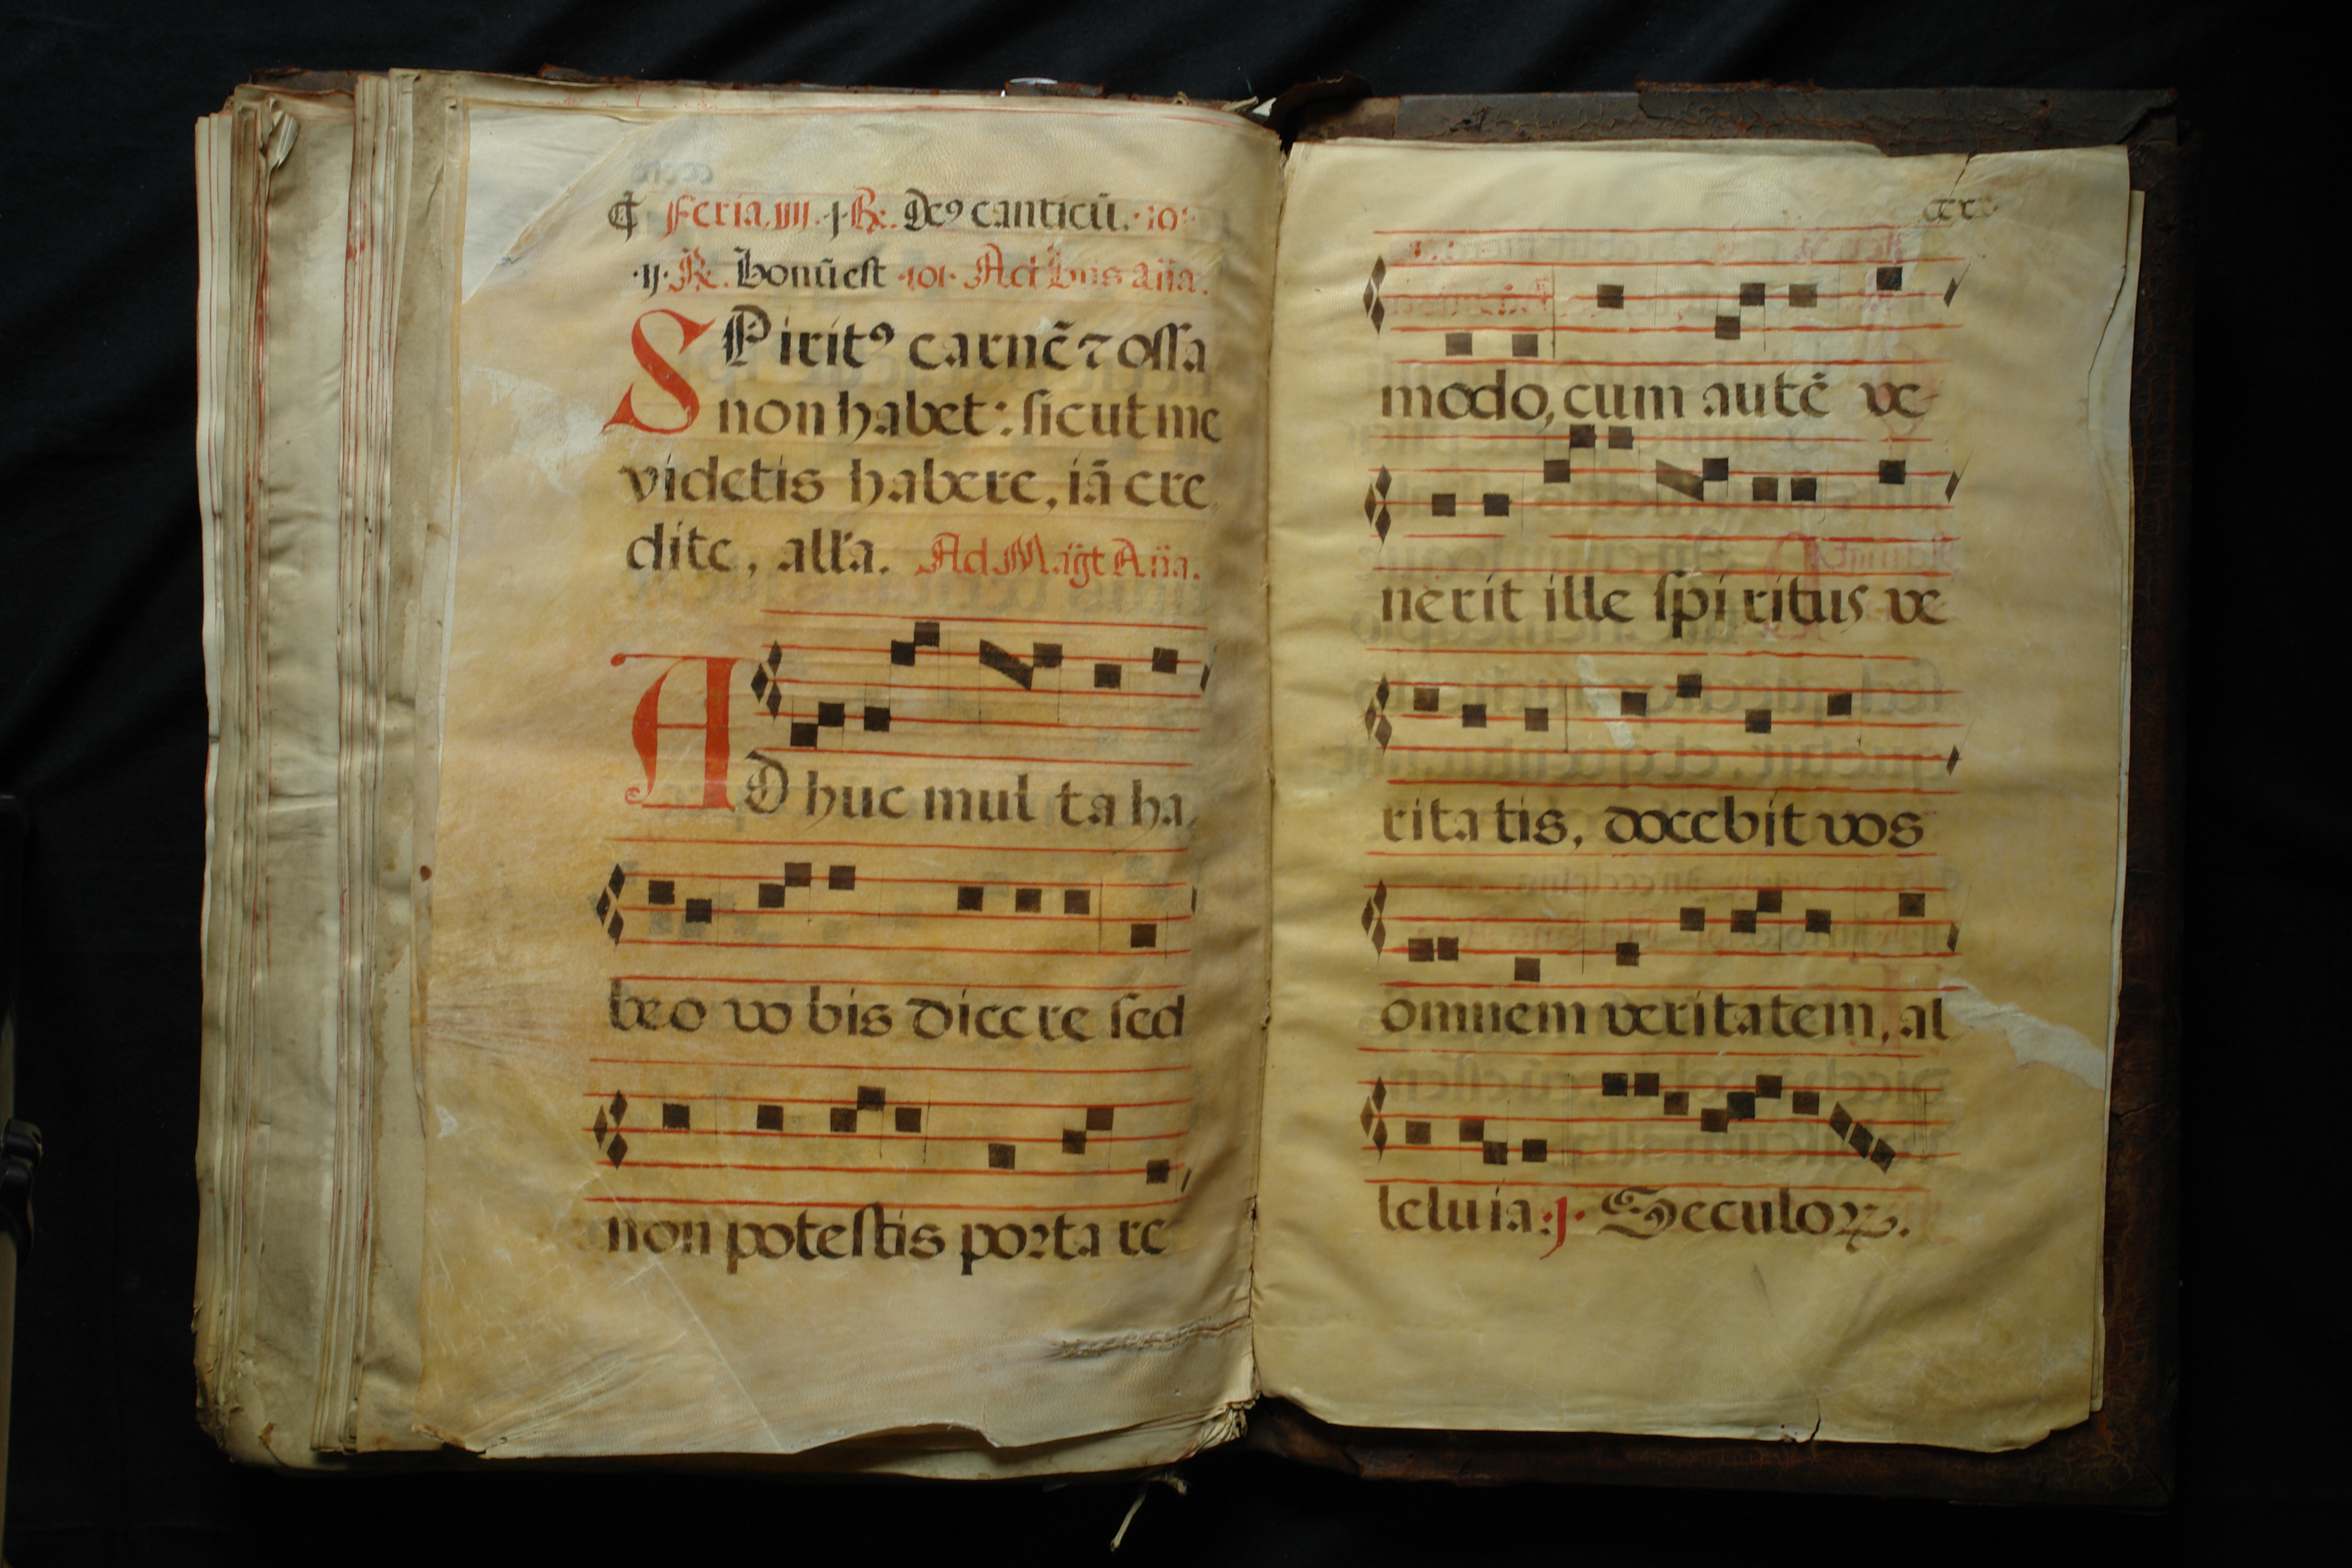 ¶ Feria. iiij. j. ℟. Deꝰ canticū. ·101·
·ij· ℟. bonū est ·101· Ad bñs añа.
SPiritꝰ carnē ⁊ ossa
non habet: sicut me
videtis habere, iā cre
dite, all'a. Ad Mag̃t Aña.
AD huc mul ta ha
beo vo bis dicere sed
non potestis porta re
modo, cum autē ve
nerit ille spi ritus ve
rita tis, docebit vos
omnem veritatem, al
leluia. j. Seculoꝝ.